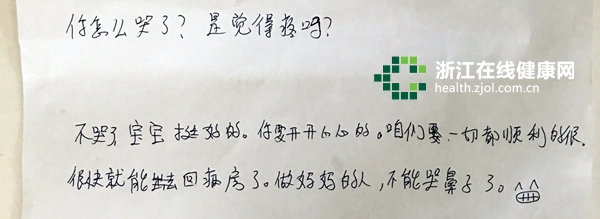 你怎么哭了？是觉得疼吗？
浙江在线健康网
health.zjol.com.cn
不哭了宝宝挺好的。你要开开心心的。咱们要一切都顺利的很.
很快就能出去回病房了。做妈妈的人,不能哭鼻子了。